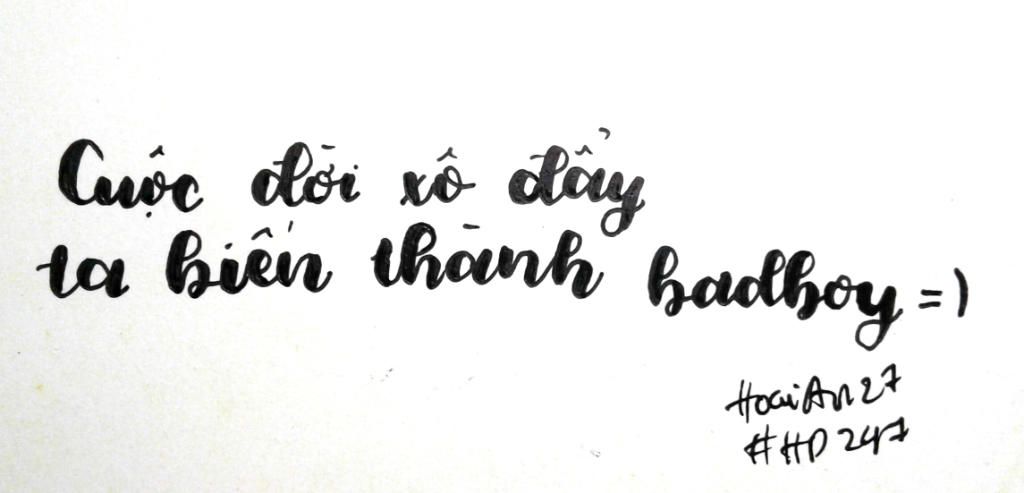 Cuộc đời xô đẩy
ta biến thành badboy =)
HoaiAn27
#HD247